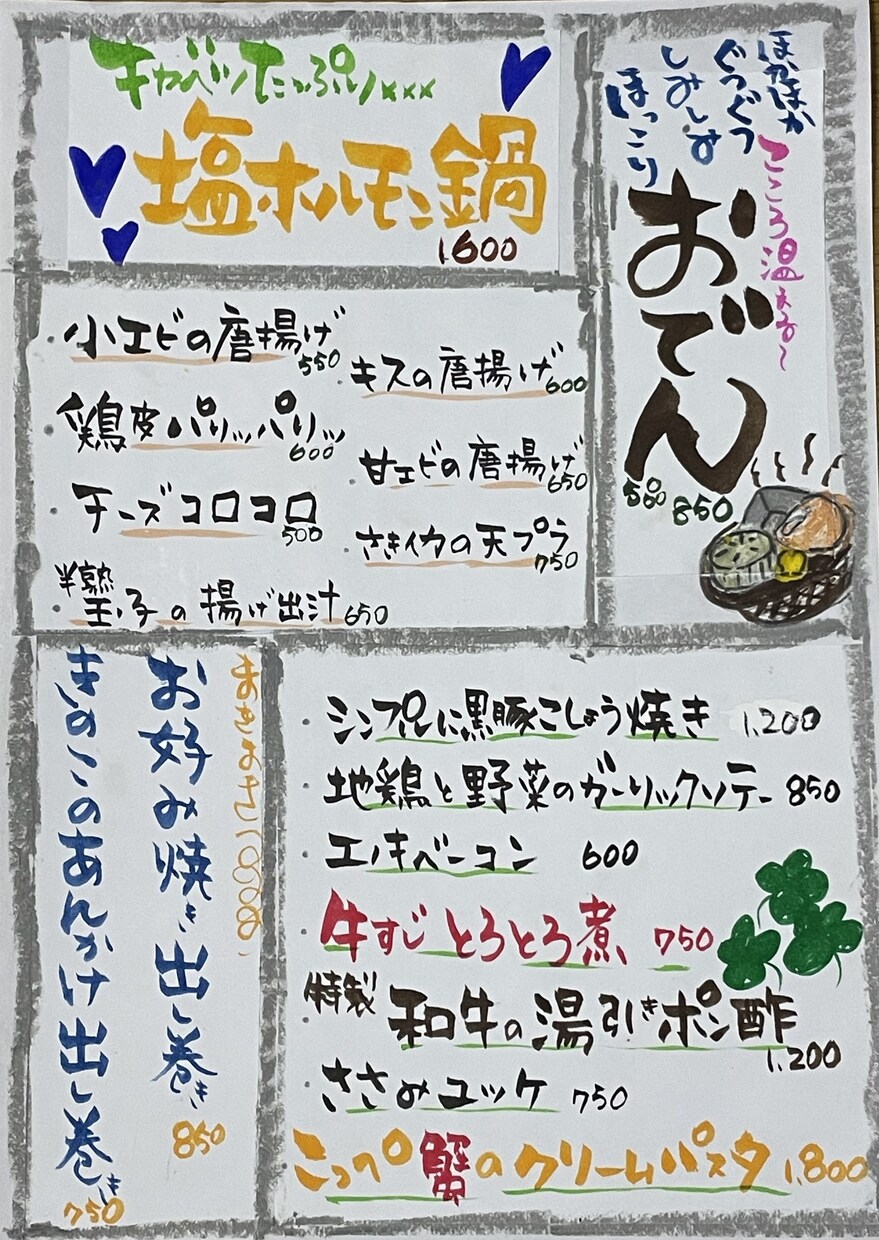 キャベツたっぷり×××
塩ホルモン鍋
1.600
ほかほか
ぐつぐつ
しみしみ
ほっこり
こころ温まる〜
おでん
580 850
・小エビの唐揚げ 550
・キスの唐揚げ 600
・鶏皮パリッパリッ 600
・甘エビの唐揚げ 650
・チーズコロコロ 500
・さきイカの天プラ 750
・半熟玉子の揚げ出汁 650
お好み焼き出し巻き 850
きのこのあんかけ出し巻き 750
・シンプルに黒豚こしょう焼き 1.200
・地鶏と野菜のガーリックソテー 850
・エノキベーコン 600
・牛すじとろとろ煮 750
・特製 和牛の湯引きポン酢 1.200
・ささみユッケ 750
こっペ蟹のクリームパスタ 1.800